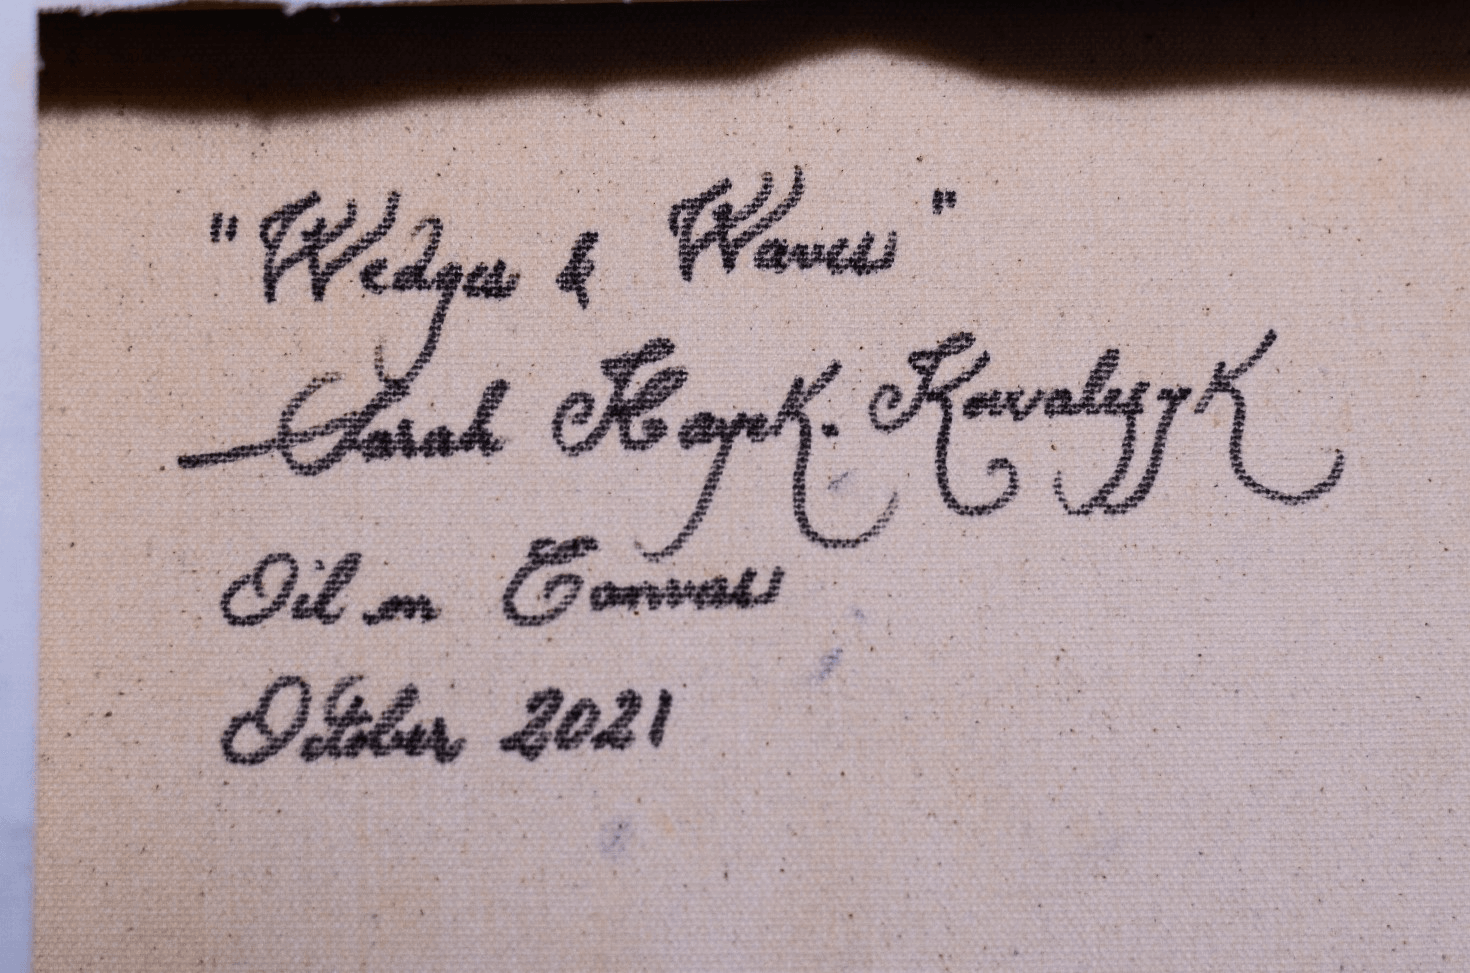 "Wedges & Waves"
Sarah Hayek. Kowalczyk
Oil on Canvas
October 2021